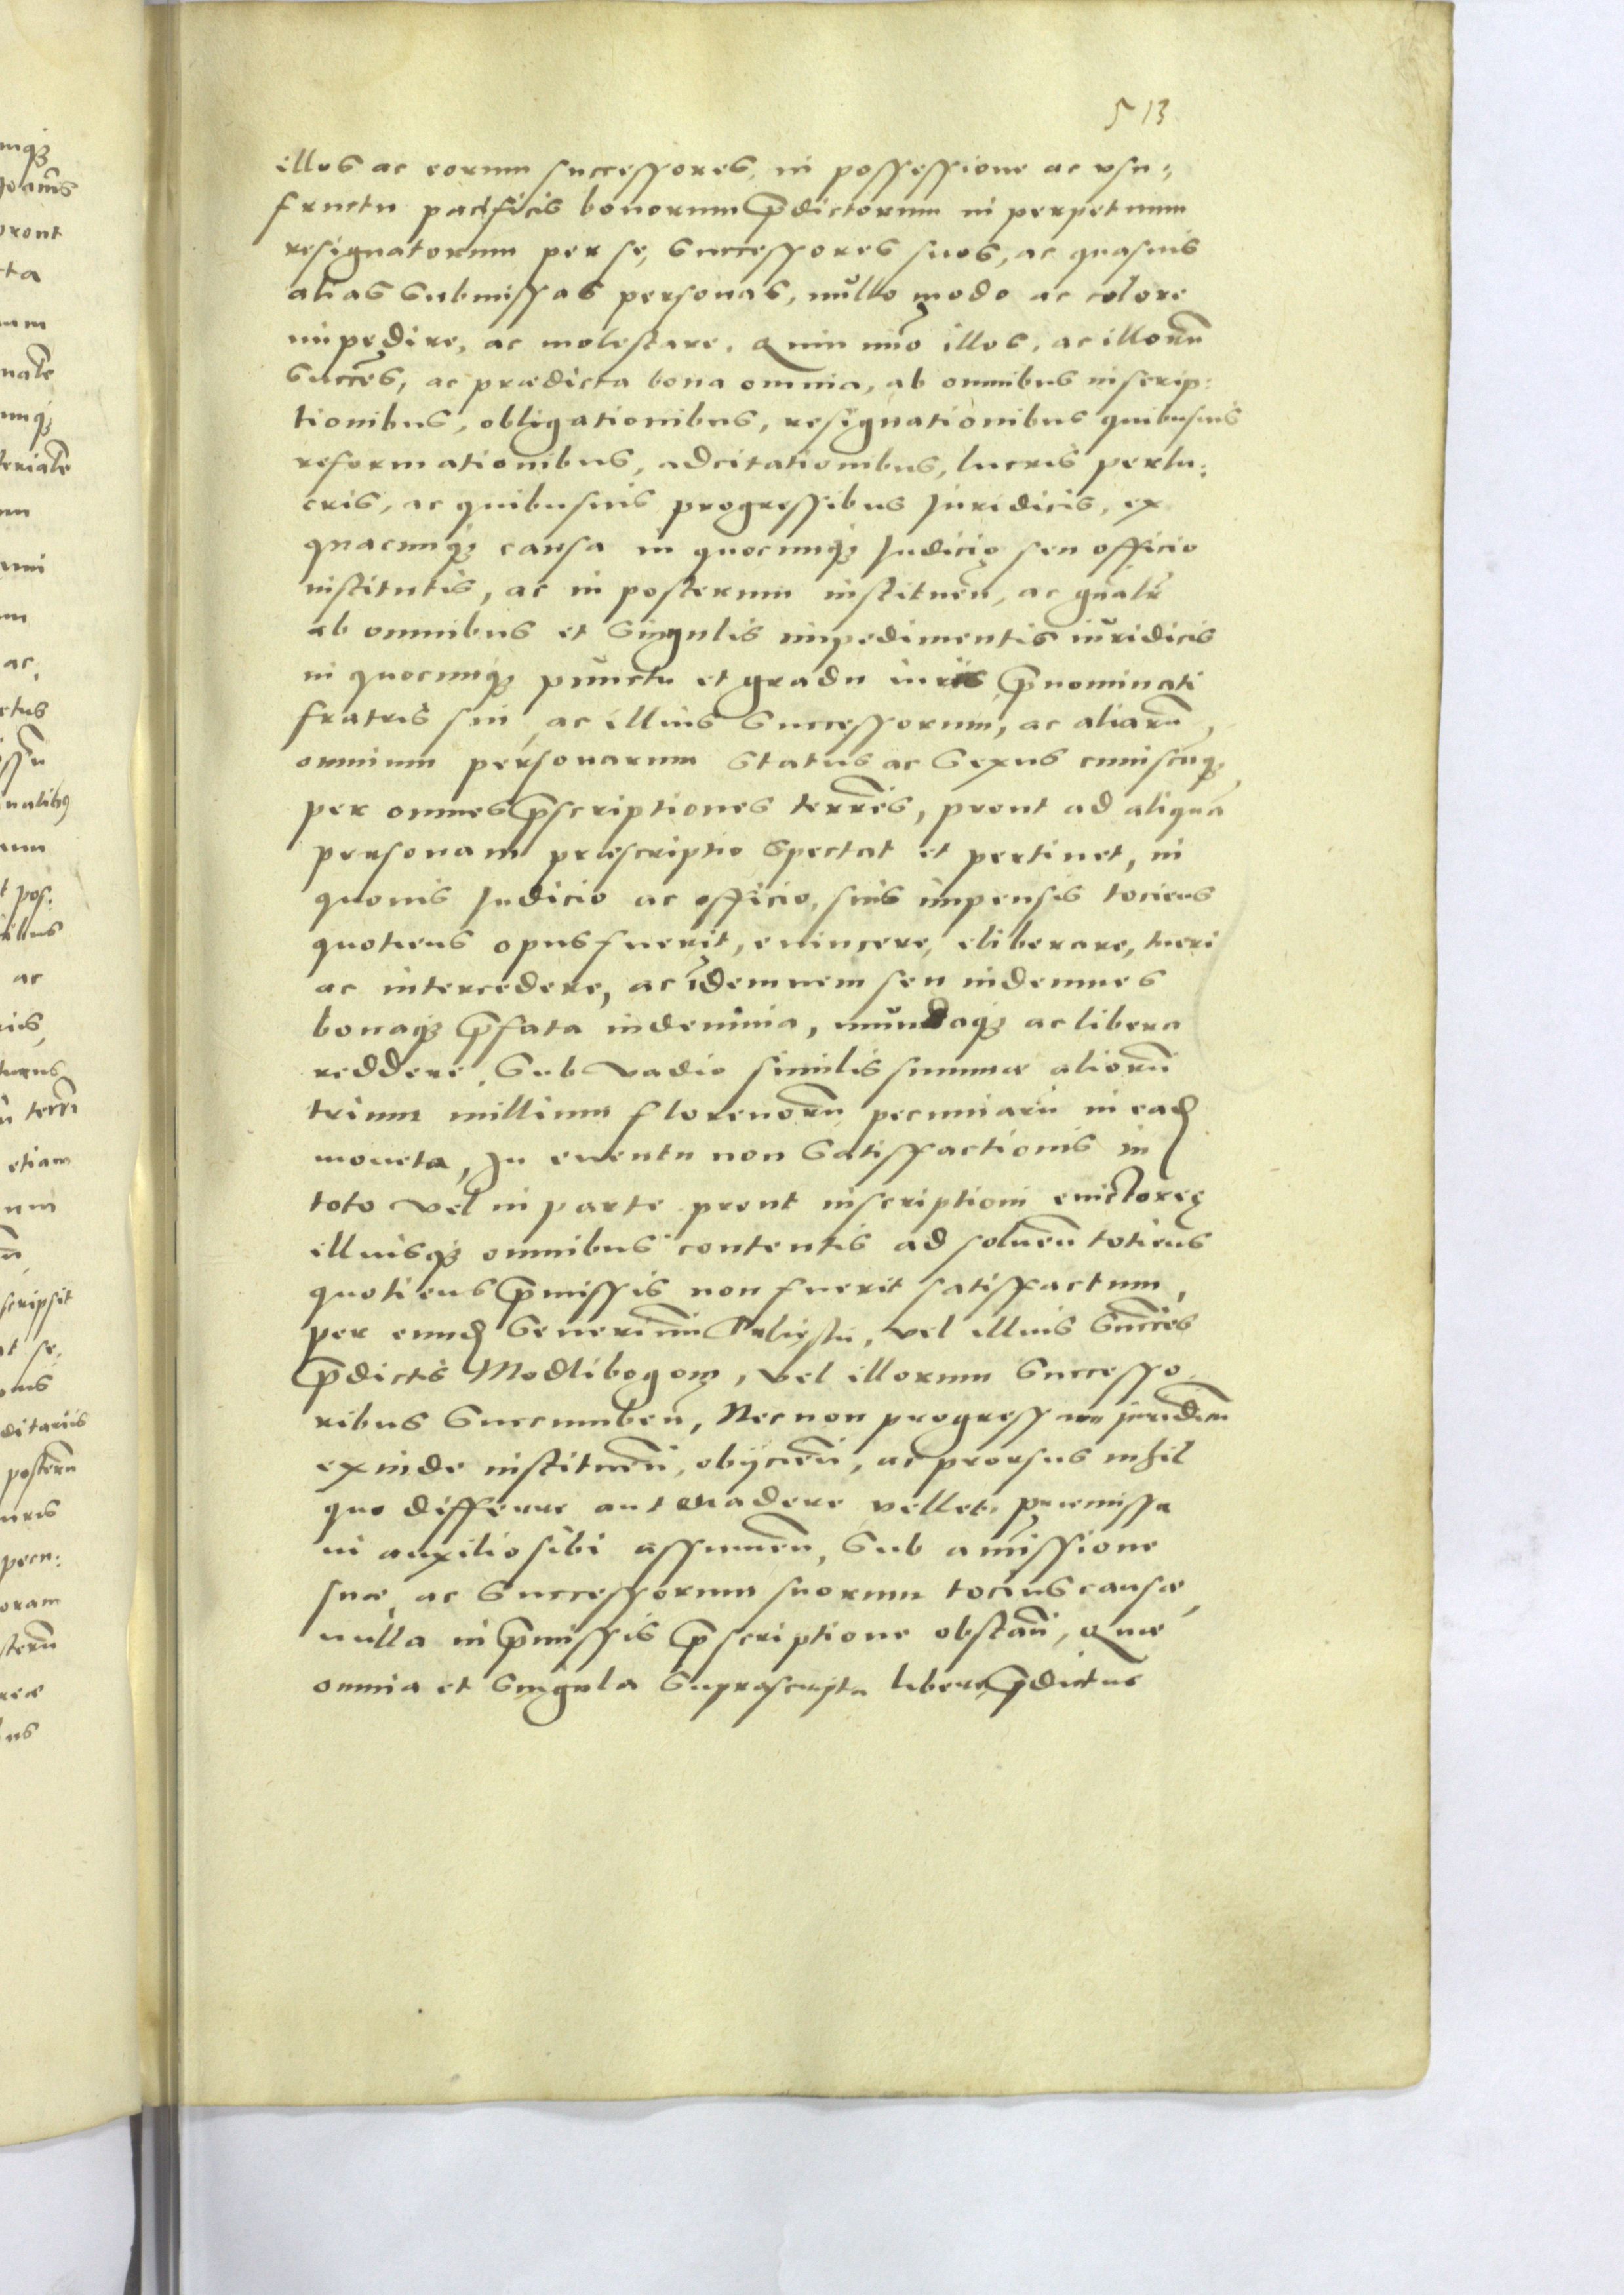 513
illos ac eorum successores, in possessione ac usu,
fructu pacificis bonorum p̄dictorum in perpetuum
resignatorum per se, successores suos, ac quasuis
alias submissas personas, nullo modo ac colore
impedire, ac molestare, Quin im̄o illos, ac illorū
succēs, ac prædicta bona omnia, ab omnibus inscrip:
tionibus, obligationibus, resignationibus quibusuis
reformationibus, adcitationibus, lucris perlu:
cris, ac quibusuis progressibus Juridicis, ex
quacunq; causa in quocunq; Judicio seu officio
institutis, ac in posterum instituen̄, ac gn̄alr̄
ab omnibus et singulis impedimentis iuridicis
in quocunq; punctu et gradu iuris p̄nominati
fratris sui, ac illius successorum, ac aliarū,
omnium personarum status ac sexus cuiuscūq;
per omnes p̄scriptiones terrēs, prout ad aliquā
personam præscriptio spectat et pertinet, in
quouis Judicio ac officio, suis impensis tociens
quotiens opus fuerit, euincere, eliberare, tueri
ac intercedere, ac īdemnem seu indemnes
bonaq; p̄fata indemnia, mundaq; ac libera
reddere, sub vadio similis summæ aliorū
trium millium florenorū pecuniarū in ead
moneta, In euentu non satisfactionis in
toto vel in parte prout inscriptioni euictoreę
illiusq; omnibus contentis ad soluen̄ totiens
quotiens p̄missis non fuerit satisfactum,
per eund Seuerinum vel illius succēs
p̄dictis Modlibogom, vel illorum successo
ribus succumben̄, Nec non progressum juridicū
exinde instituen̄, obijcien̄, ac prorsus nihil
quo differre aut euadere vellet, præmissa
in auxilio sibi assumen̄, sub amissione
suæ ac successorum suorum tocius causæ,
nulla in p̄missis p̄scriptione obstan̄, Quæ
omnia et singula suprascripta libere p̄dictus